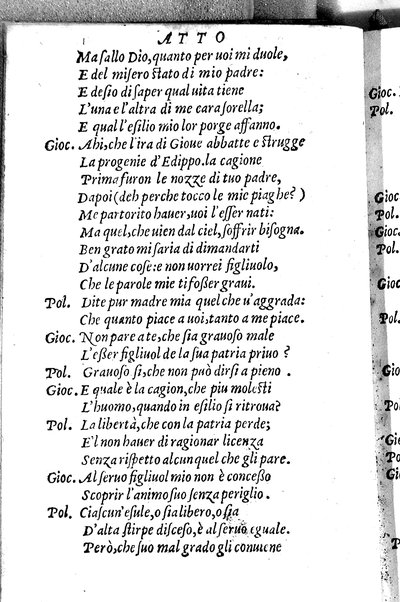 ATTO
Ma ſallo Dio, quanto per uoi mi duole,
E del miſero ſtato di mio padre:
E deſio di ſaper qual uita tiene
L'una e l'altra di me cara ſorella;
E qual l'eſilio mio lor porge affanno.
Gioc. Ahi, che l'ira di Gioue abbatte e ſtrugge
La progenie d'Edippo. la cagione
Prima furon le nozze di tuo padre,
Dapoi (deh perche tocco le mie piaghe?)
Me partorito hauer, uoi l'eſſer nati:
Ma quel, che uien dal ciel, ſoffrir biſogna.
Ben grato mi ſaria di dimandarti
D'alcune coſe: e non uorrei figliuolo,
Che le parole mie ti foſſer graui.
Pol. Dite pur madre mia quel che u'aggrada:
Che quanto piace a uoi, tanto a me piace.
Gioc. Non pare a te, che ſia grauoſo male
L'eſſer figliuol de la ſua patria priuo?
Pol. Grauoſo ſi, che non può dirſi a pieno.
Gioc. E quale è la cagion, che piu moleſti
L'huomo, quando in eſilio ſi ritroua?
Pol. La libertà, che con la patria perde;
E'l non hauer di ragionar licenza
Senza riſpetto alcun quel che gli pare.
Gioc. Al ſeruo figliuol mio non è conceſſo
Scoprir l'animo ſuo ſenza periglio.
Pol. Ciaſcun'eſule, o ſia libero, o ſia
D'alta ſtirpe diſceſo, è al ſeruo eguale.
Però, che ſuo mal grado gli conuiene
Gioc.
Pol.
Gioc
Pol.
Gioc
Pol.
Gioc
Gioc
Po
Gi
Po
Gi
P